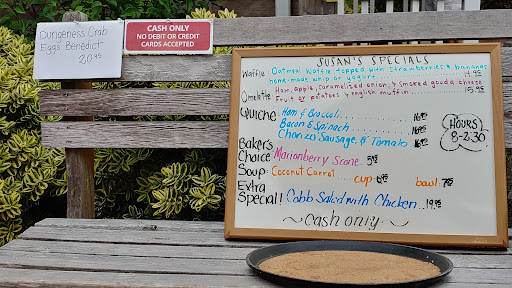 Dungeness Crab
Eggs Benedict
20.95
CASH ONLY
NO DEBIT OR CREDIT
CARDS ACCEPTED
SUSAN'S SPECIALS
Waffle: Oatmeal Waffle topped with strawberries & bananas
home-made whip or yogurt 14.95
Omelette Ham, apple, caramelized onion, & smoked gouda cheese
Fruit or potatoes & english muffin.... 15.95
Quiche Ham & Broccoli.......... 16.95
Bacon & Spinach............ 16.95
Chorizo Sausage, & Tomato 16.95
HOURS
8-2:30
Baker's
Choice Marionberry Scone 5.95
Soup Coconut Carrot.... cup 6.95 bowl 7.95
Extra
Special! Cobb Salad with Chicken.. 19.95
~ Cash only ~